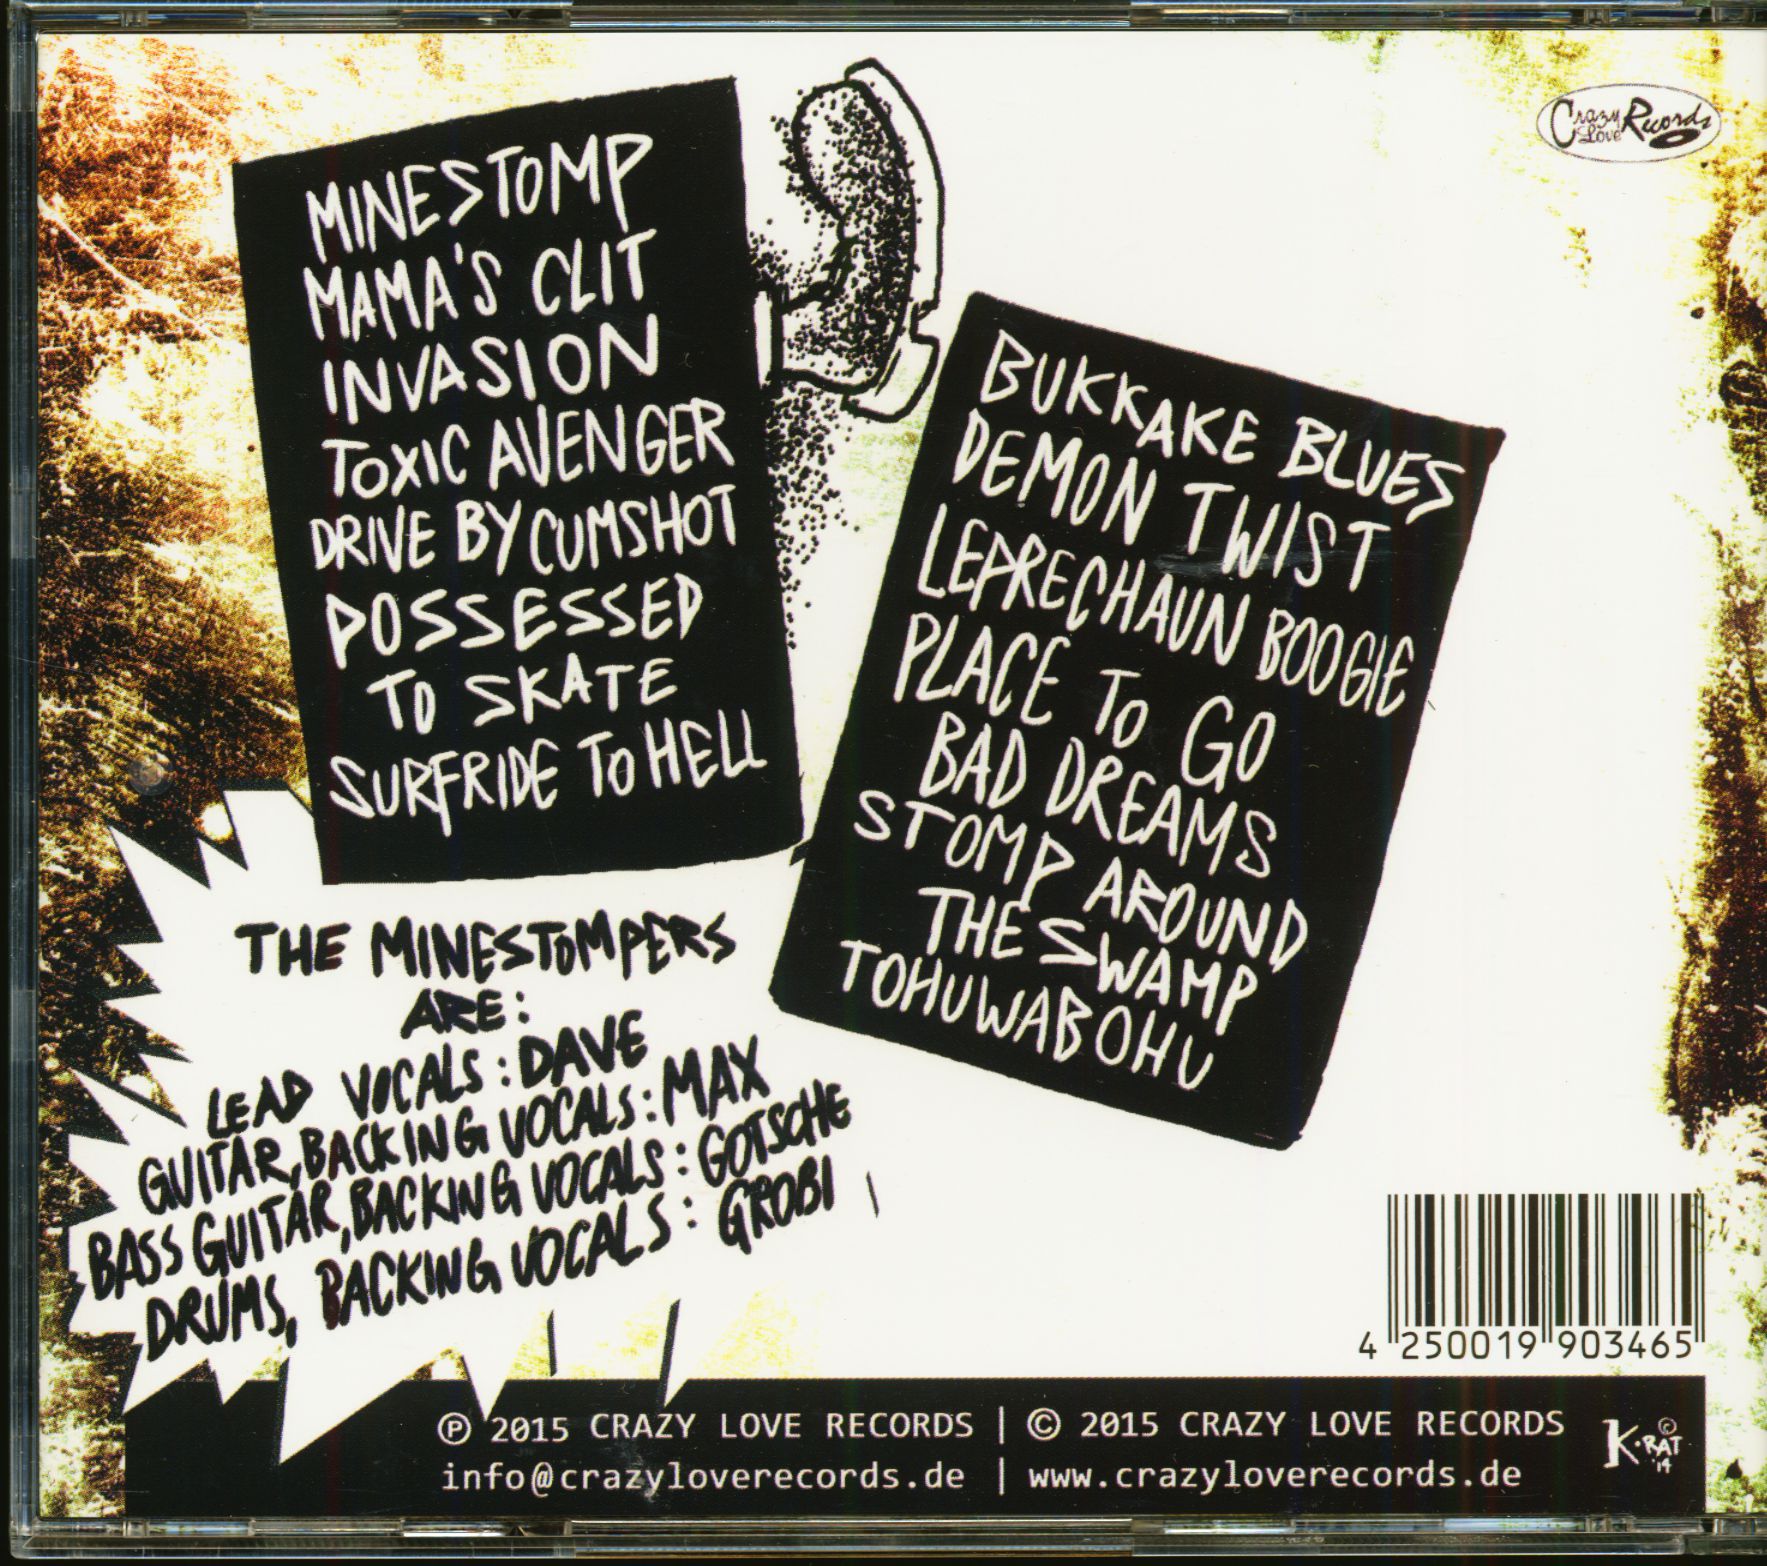 Crazy Love Records
MINESTOMP
MAMA'S CLIT
INVASION
TOXIC AVENGER
DRIVE BY CUMSHOT
POSSESSED
TO SKATE
SURFRIDE TO HELL
BUKKAKE BLUES
DEMON TWIST
LEPRECHAUN BOOGIE
PLACE TO GO
BAD DREAMS
STOMP AROUND
THE SWAMP
TOHUWABOHU
THE MINESTOMPERS
ARE:
LEAD VOCALS: DAVE
GUITAR, BACKING VOCALS: MAX
BASS GUITAR, BACKING VOCALS: GOTSCHE
DRUMS, BACKING VOCALS: GROBI
4 250019 903465
℗ 2015 CRAZY LOVE RECORDS | © 2015 CRAZY LOVE RECORDS
info@crazyloverecords.de | www.crazyloverecords.de
K·RAT © '14